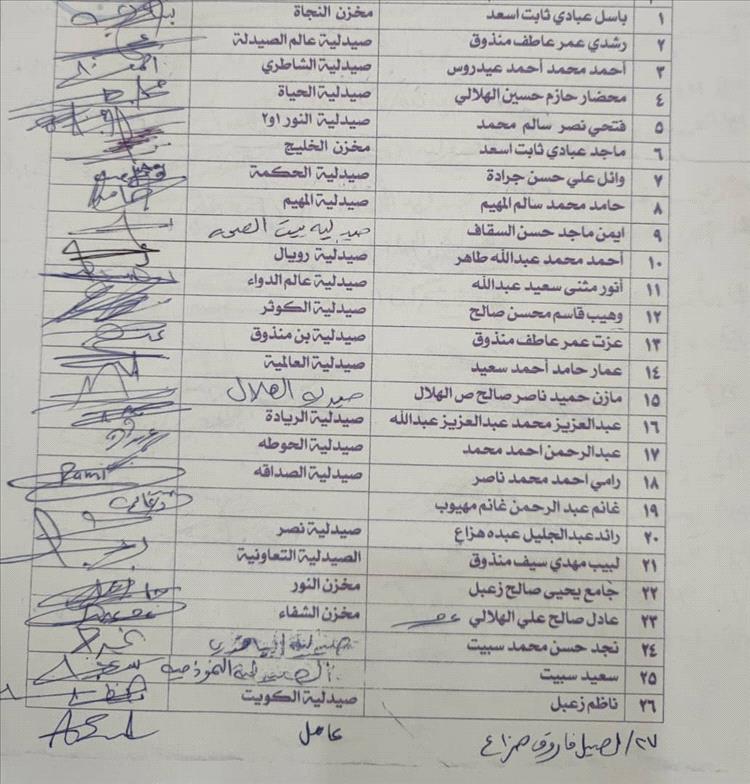 ١ باسل عبادي ثابت اسعد مخزن النجاة
٢ رشدي عمر عاطف منذوق صيدلية عالم الصيدلة
٣ أحمد محمد أحمد عيدروس صيدلية الشاطري
٤ محضار حازم حسين الهلالي صيدلية الحياة
٥ فتحي نصر سالم محمد صيدلية النور ١و٢
٦ ماجد عبادي ثابت اسعد مخزن الخليج
٧ وائل علي حسن جرادة صيدلية الحكمة
٨ حامد محمد سالم المهيم صيدلية المهيم
٩ ايمن ماجد حسن السقاف صيدلية بيت الصحة
١٠ أحمد محمد عبدالله طاهر صيدلية رويال
١١ أنور مثنى سعيد عبدالله صيدلية عالم الدواء
١٢ وهيب قاسم محسن صالح صيدلية الكوثر
١٣ عزت عمر عاطف منذوق صيدلية بن منذوق
١٤ عمار حامد أحمد سعيد صيدلية العالمية
١٥ مازن حميد ناصر صالح ص الهلال صيدلية الهلال
١٦ عبدالعزيز محمد عبدالعزيز عبدالله صيدلية الريادة
١٧ عبدالرحمن احمد محمد صيدلية الحوطه
١٨ رامي احمد محمد ناصر صيدلية الصداقه Rami
١٩ غانم عبد الرحمن غانم مهيوب
٢٠ رائد عبدالجليل عبده هزاع صيدلية نصر
٢١ لبيب مهدي سيف منذوق الصيدلية التعاونية
٢٢ جامع يحيى صالح زعبل مخزن النور
٢٣ عادل صالح علي الهلالي مخزن الشفاء
٢٤ نجد حسن محمد سبيت صيدلية
٢٥ سعيد سبيت الصيدلية النموذجية
٢٦ ناظم زعبل صيدلية الكويت
٢٧/ فاروق هزاع عامل